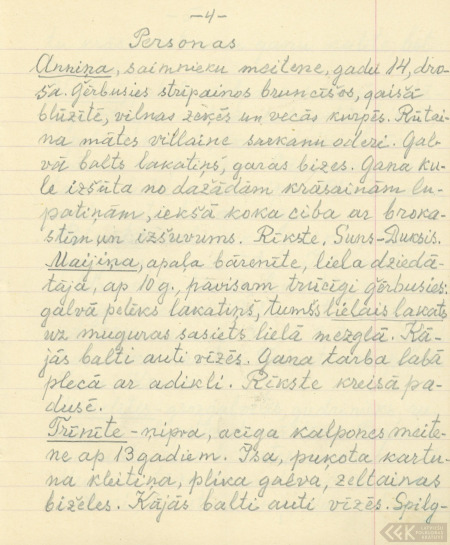 -4-
Personas
Anniņa, saimnieku meitene, gadu 14, dro-
ša. Ģērbusies strīpainos brunčišos, gaišā
blūzītē, vilnas zeķēs un vecās kurpēs. Rūtai-
na mātes villaine sarkanu oderi. Gal-
vā balts lakatiņš, garas bizes. Gana ku-
le izšūta no dažādām krāsainām lu-
patiņām, iekšā koka ciba ar broka-
stīm un izšuvums. Rīkste, Suns-Duksis.
Maijiņa, apaļa bārenīte, liela dziedā-
tāja, ap 10 g., pavisam trūcīgi ģērbusies:
galvā pelēks lakatiņš, tumšs lielais lakats
uz muguras sasiets lielā mezglā. Kā-
jās balti auti vīzēs. Gana tarba labā
plecā ar adīkli. Rīkste kreisā pa-
dusē.
Trīnīte - ņipra, acīga kalpones meite-
ne ap 13 gadiem. Īsa, puķota kartu-
na kleitiņa, plika galva, zeltainas
bizeles. Kājās balti auti vīzēs. Spilg-